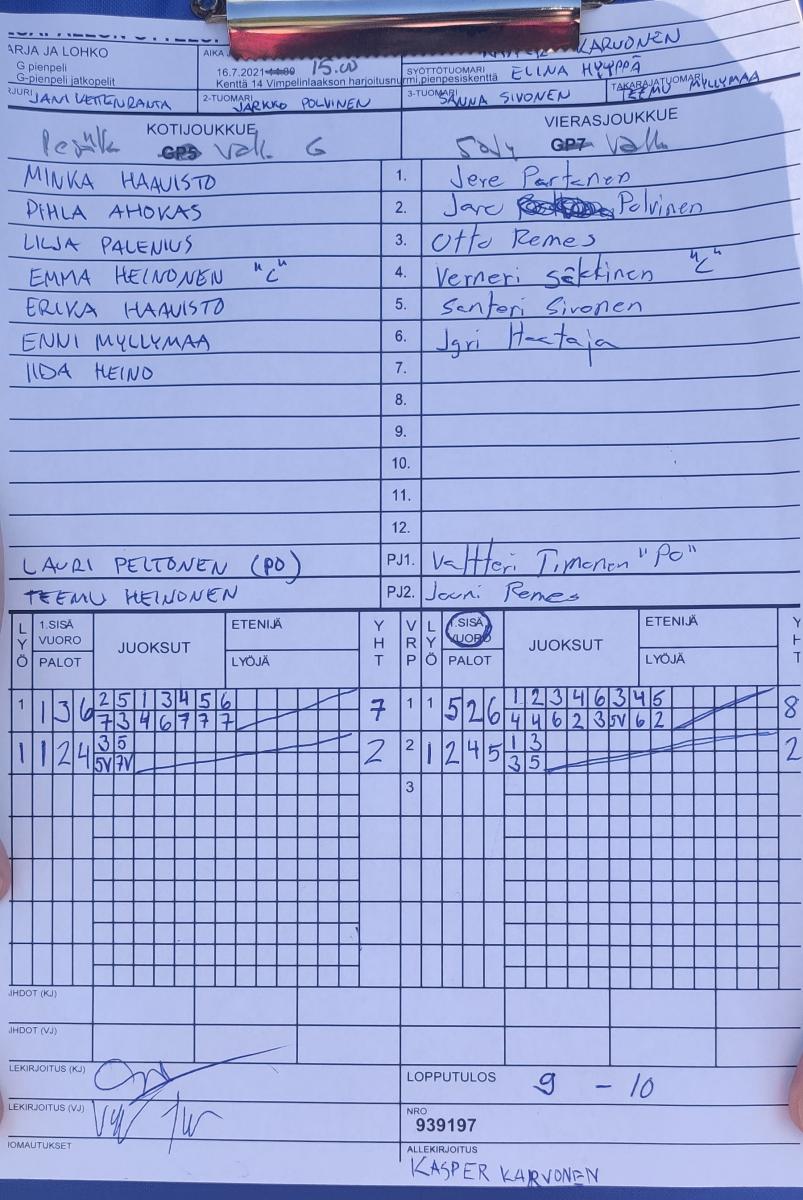 ARJA JA LOHKO
G pienpeli
G-pienpeli jatkopelit
AIKA
16.7.2021 14.00 15.00
Kenttä 14 Vimpelinlaakson harjoitusnurmi,pienpesiskenttä
KARVONEN
SYÖTTÖTUOMARI ELINA HYYPPÄ
JANI VETTENRANTA
2-TUOMARI JARKKO POLVINEN
3-TUOMARI SANNA SIVONEN
TAKARAJATUOMARI TEEMU MYLLYMAA
KOTIJOUKKUE
VIERASJOUKKUE
GP5 Valk. G
GP7 Valk
MINKA HAAVISTO 1. Jere Partanen
PIHLA AHOKAS 2. Jare Polvinen
LILJA PALENIUS 3. Otto Remes
EMMA HEINONEN "C" 4. Verneri Säkkinen "C"
ERIKA HAAVISTO 5. Santeri Sivonen
ENNI MYLLYMAA 6. Jyri Haataja
IIDA HEINO 7.
8.
9.
10.
11.
12.
LAURI PELTONEN (PO) PJ1. Valtteri Timonen "PO"
TEEMU HEINONEN PJ2. Jouni Remes
LYÖ 1.SISÄ VUORO PALOT JUOKSUT ETENIJÄ LYÖJÄ YHT VRP LYÖ 1.SISÄ VUORO PALOT JUOKSUT ETENIJÄ LYÖJÄ YHT
1 1 3 6 2 5 1 3 4 5 6 7 1 1 5 2 6 1 2 3 4 6 3 4 5 8
7 3 4 6 7 7 7 4 4 6 2 3 5V 6 2
1 1 2 4 3 5 2 2 1 2 4 5 1 3 2
5V 7V 3 5
3
JHDOT (KJ)
JHDOT (VJ)
LEKIRJOITUS (KJ)
LOPPUTULOS 9 - 10
LEKIRJOITUS (VJ)
NRO
939197
IOMAUTUKSET
ALLEKIRJOITUS
KASPER KARVONEN